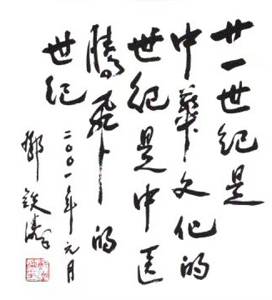 廿一世纪是
中華文化的
世纪是中医
腾飛的
世纪
二〇〇一年元月
鄧铁涛